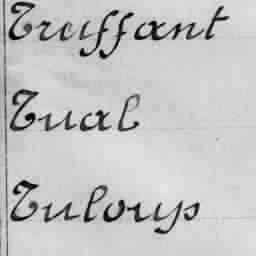 Truffant
Tual
Tuloup